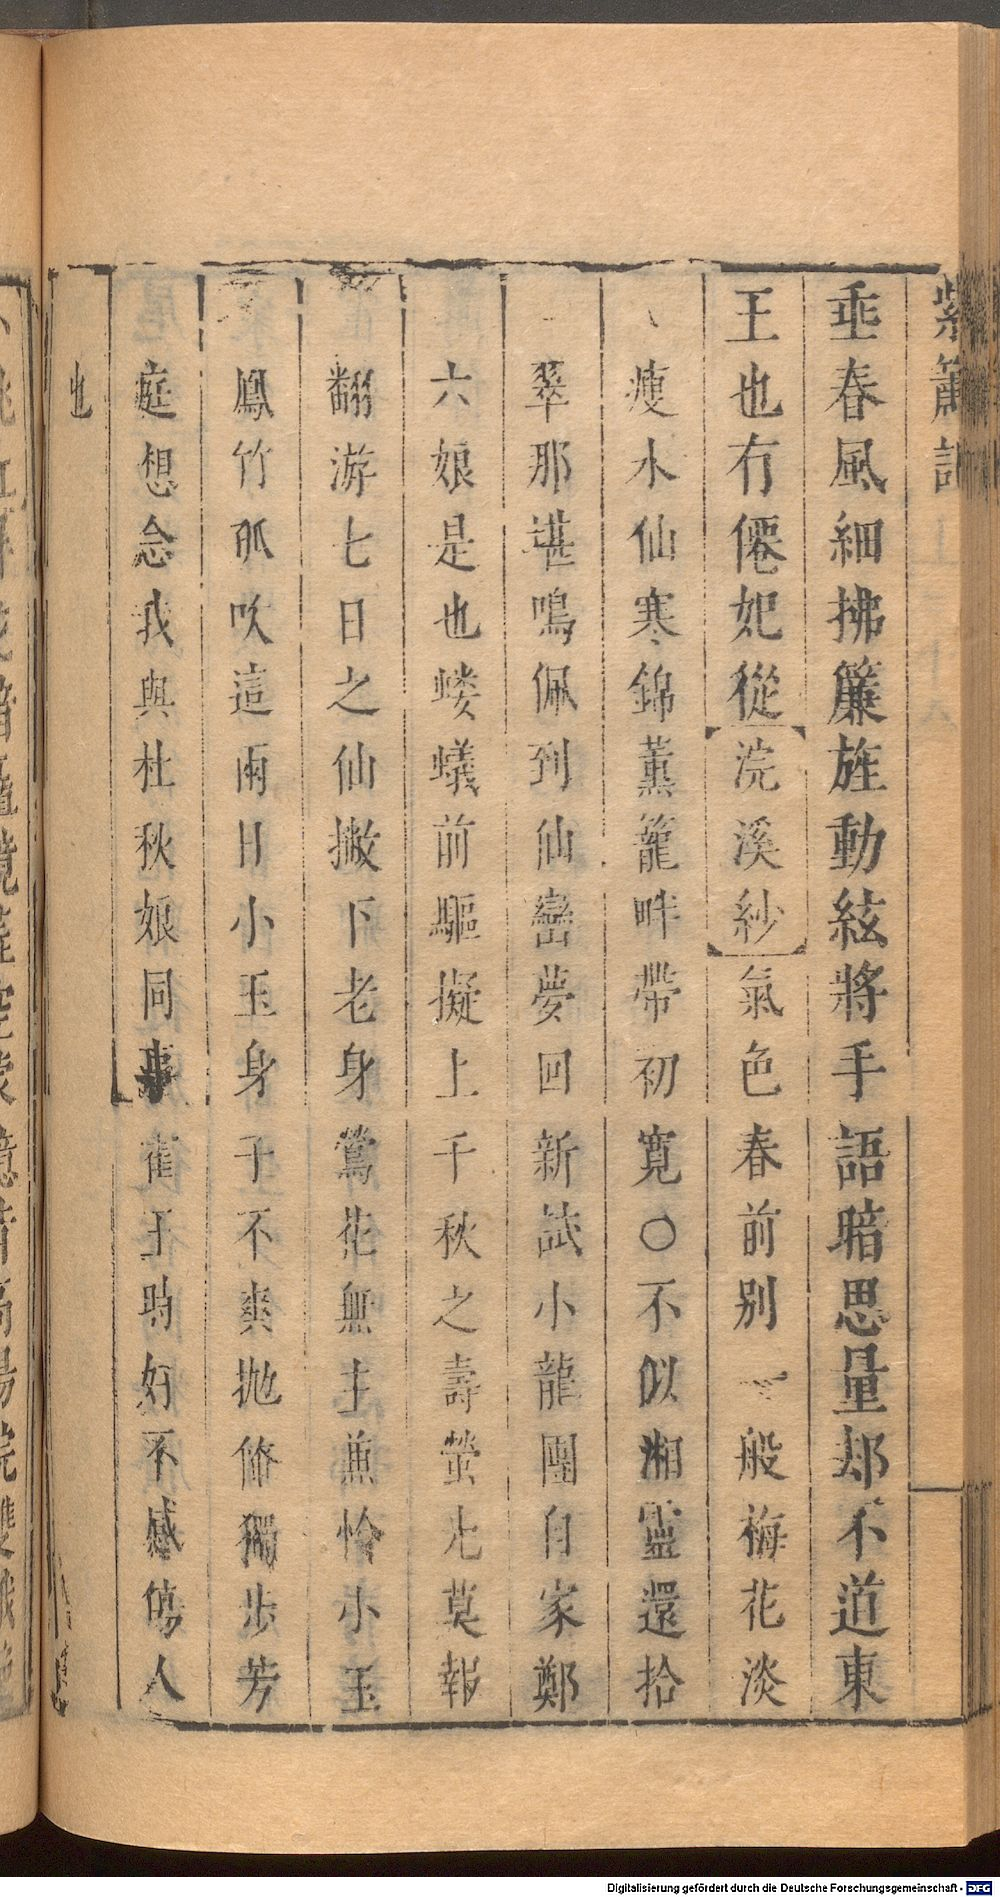 紫簫記
垂春風細拂簾旌動絃將手語暗思量却不道東
王也有僊妃從浣溪紗氣色春前别一般梅花淡
瘦水仙寒錦薰籠畔帶初寛○不似湘靈還拾
翠那堪鳴佩到仙巒夢回新試小龍團自家鄭
六娘是也螻蟻前驅擬上千秋之壽螢光莫報
翻游七日之仙撇下老身鶯花無主兼怜小玉
鳳竹孤吹這兩日小玉身子不爽抛俺獨步芳
庭想念我與杜秋娘同事霍王時好不感傷人
也
Digitalisierung gefördert durch die Deutsche Forschungsgemeinschaft - DFG